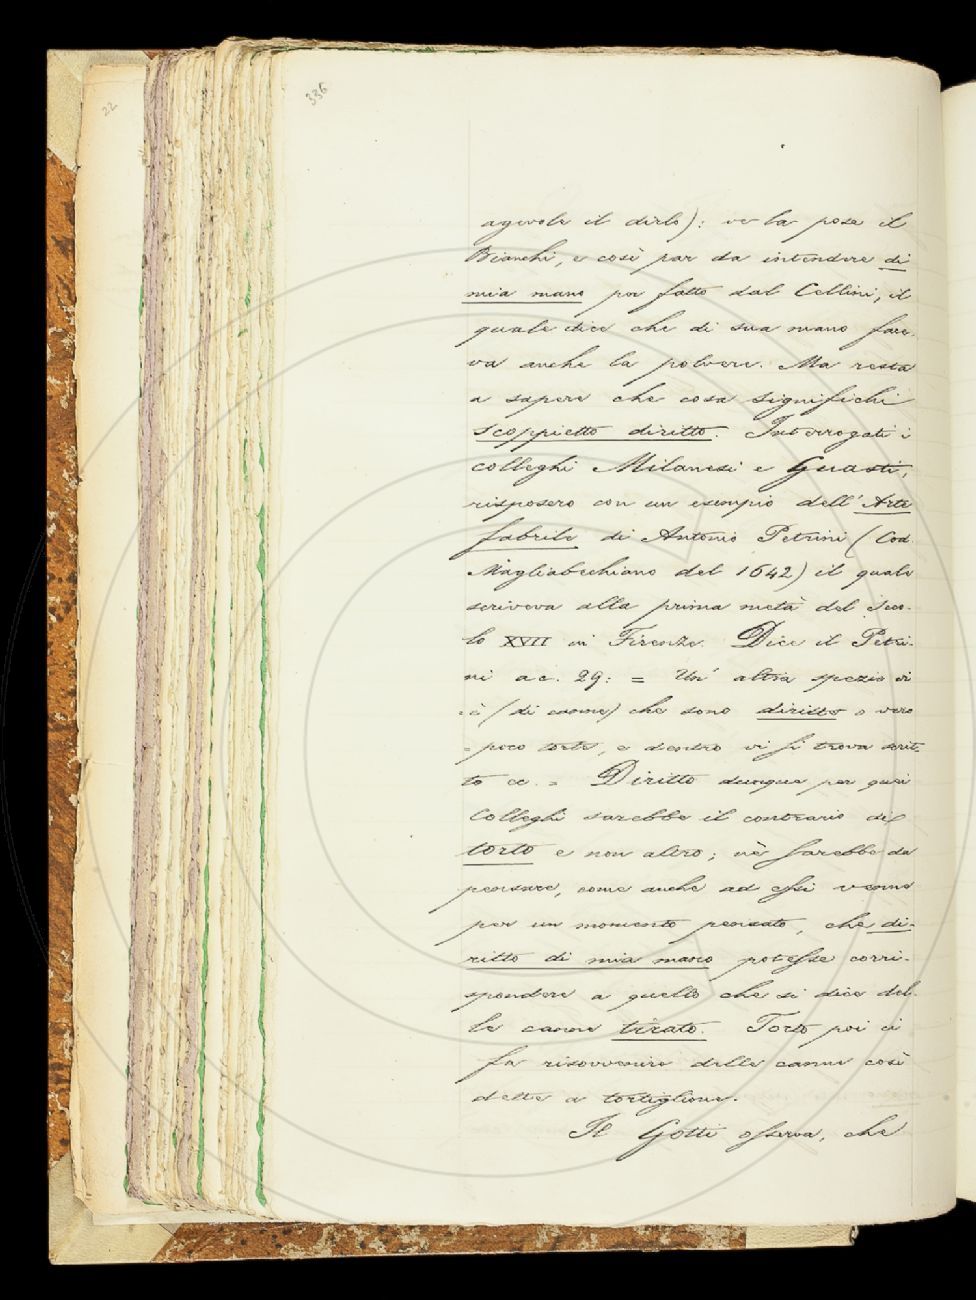 22
336
agevole il dirlo): ve la pose il
Bianchi, e così par da intendere di
mia mano per fatto dal Cellini, il
quale dice che di sua mano face-
va anche la polvere. Ma resta
a sapere che cosa significhi
scoppietto diritto. Interrogati i
colleghi Milanesi e Guasti,
risposero con un esempio dell'Arte
fabrile di Antonio Petrini (Cod.
Magliabechiano del 1642) il quale
scriveva alla prima metà del Seco-
lo XVII in Firenze. Dice il Petri-
ni a c. 29: = Un' altra spezie vi
è (di canne) che sono diritto o vero
poco torte, e dentro vi si trova scrit-
to ec. = Diritto dunque per quei
Colleghi sarebbe il contrario di
torto e non altro; nè sarebbe da
pensare, come anche ad essi venne
per un momento pensato, che di-
ritto di mia mano potesse corri-
spondere a quello che si dice del-
le canne tirato. Torto poi ci
fa risovvenire delle canne così
dette a tortiglione.
Il Gotti osserva, che